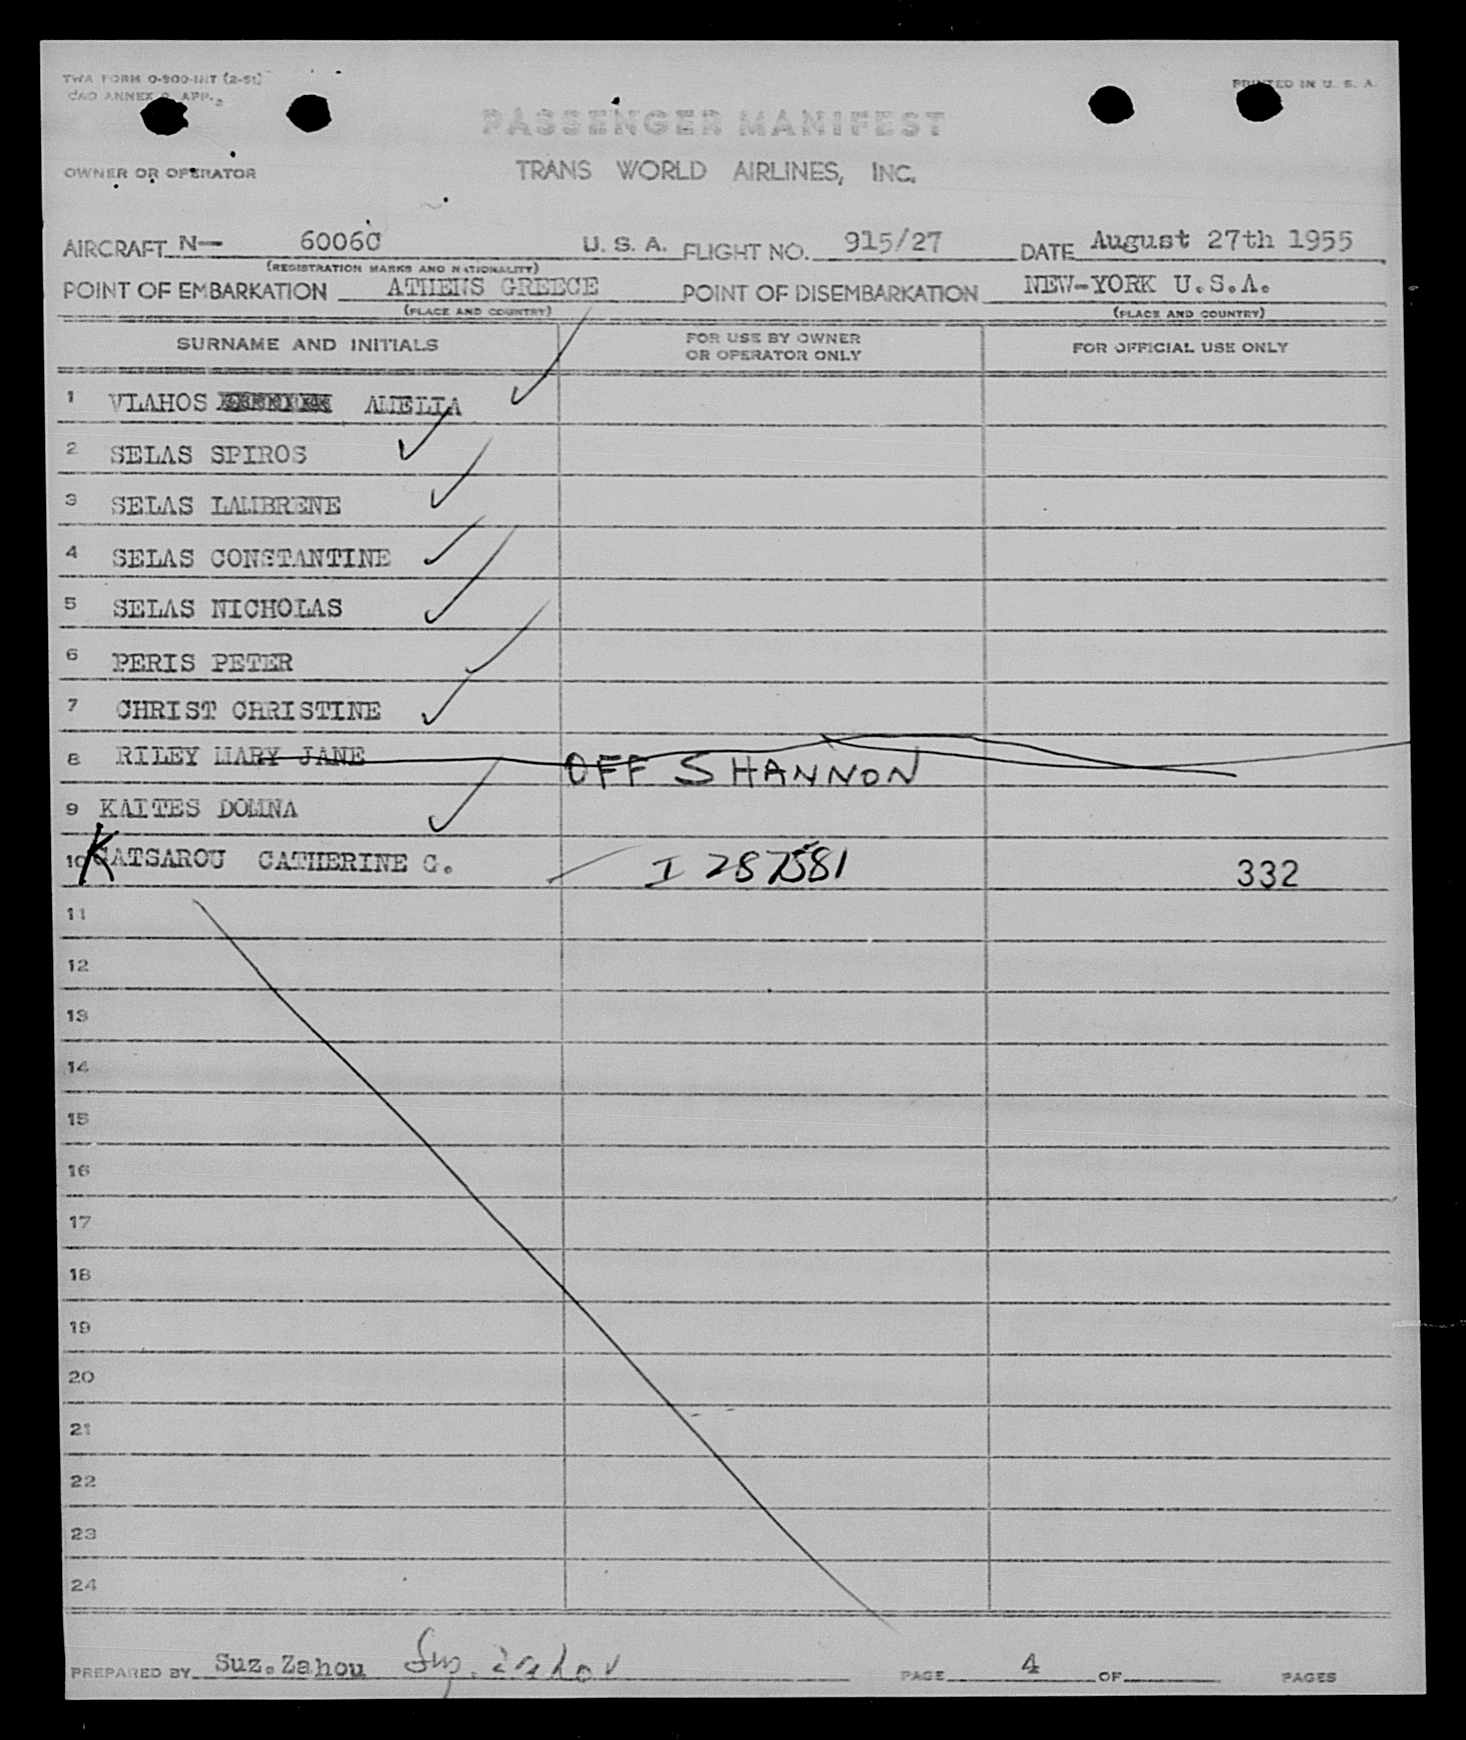 TWA FORM 0-900-INT (2-51)
PRINTED IN U. S. A.
CAO ANNEX 9, APP. 2
PASSENGER MANIFEST
OWNER OR OPERATOR TRANS WORLD AIRLINES, INC.
AIRCRAFT N- 60060 U. S. A. FLIGHT NO. 915/27 DATE August 27th 1955
(REGISTRATION MARKS AND NATIONALITY)
POINT OF EMBARKATION ATHENS GREECE POINT OF DISEMBARKATION NEW-YORK U.S.A.
(PLACE AND COUNTRY) (PLACE AND COUNTRY)
SURNAME AND INITIALS FOR USE BY OWNER OR OPERATOR ONLY FOR OFFICIAL USE ONLY
1 VLAHOS AMELIA
2 SELAS SPIROS
3 SELAS LAMBRENE
4 SELAS CONSTANTINE
5 SELAS NICHOLAS
6 PERIS PETER
7 CHRIST CHRISTINE
8 RILEY MARY JANE OFF SHANNON
9 KAITES DOMNA
10 KATSAROU CATHERINE G. I 287581 332
11
12
13
14
15
16
17
18
19
20
21
22
23
24
PREPARED BY Suz.Zahou Suz. Zahou PAGE 4 OF PAGES